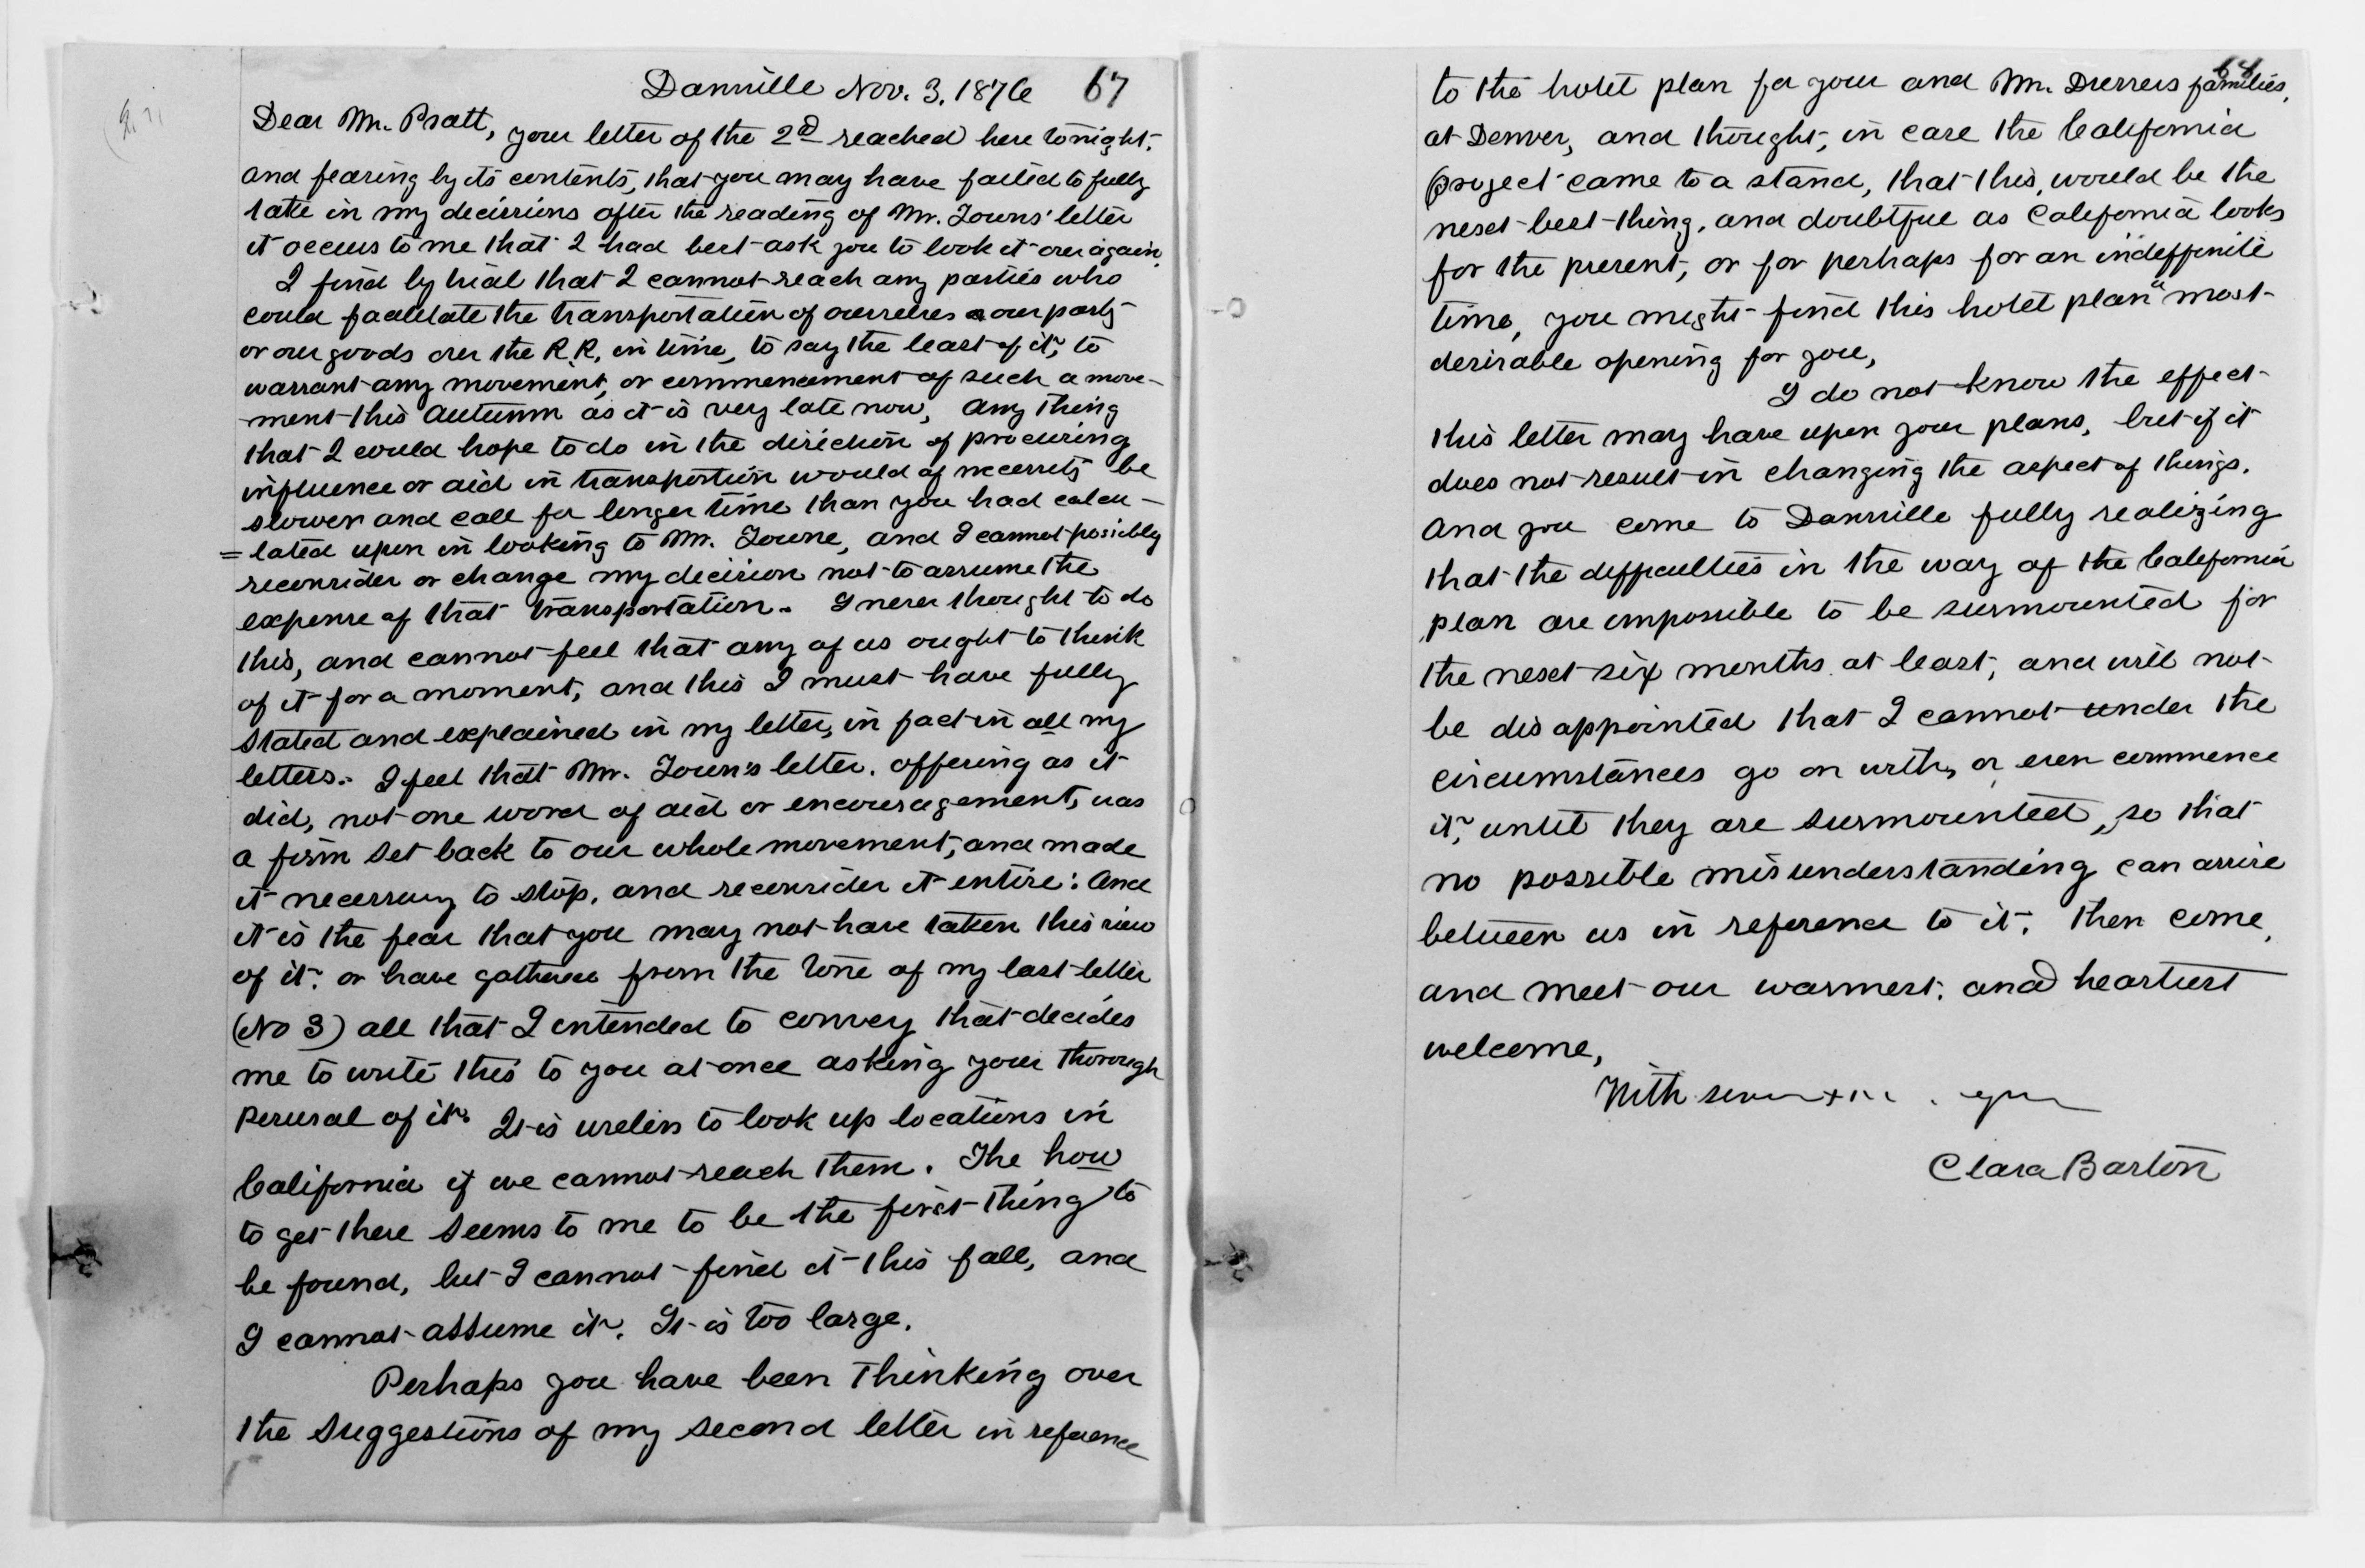 Danville Nov. 3. 1876 67
Dear Mr. Pratt, your letter of the 2d reached here tonight.
and fearing by its contents, that you may have failed to fully
take in my decisions after the reading of Mr. Towns' letter
it occurs to me that I had best ask you to look it over again.
I find by trial that I cannot reach any parties who
could facilitate the transportation of ourselves or our party
or our goods over the R.R. in time, to say the least of it, to
warrant any movement, or commencement of such a move-
-ment this autumn as it is very late now, any thing
that I could hope to do in the direction of procuring
influence or aid in transportion would of necessity be
slower and call for longer time than you had calcu-
=lated upon in looking to Mr. Towne, and I cannot possibly
reconsider or change my decision not to assume the
expense of that transportation. I never thought to do
this, and cannot feel that any of us ought to think
of it for a moment, and this I must have fully
stated and explained in my letter, in fact in all my
letters. I feel that Mr. Town's letter. offering as it
did, not one word of aid or encouragement, was
a firm set back to our whole movement, and made
it necessary to stop, and reconsider it entire: And
it is the fear that you may not have taken this view
of it. or have gathered from the tone of my last letter
(No 3) all that I intended to convey that decides
me to write this to you at once asking your thorough
perusal of it. It is useless to look up locations in
California if we cannot reach them. The how
to get there seems to me to be the first thing to
be found, but I cannot find it this fall, and
I cannot assume it. It is too large.
Perhaps you have been thinking over
the suggestions of my second letter in reference
to the hotel plan for your and Mr. families,
at Denver, and thought, in case the California
project came to a stand, that this, would be the
next best thing, and doubtful as California looks
for the present, or for perhaps for an indeffinite
time, you might find this hotel plan a most
desirable opening for you,
I do not know the effect
this letter may have upon your plans, but if it
does not result in changing the aspect of things.
and you come to Danville fully realizing
that the difficulties in the way of the California
plan are impossible to be surmounted for
the next six months at least, and will not
be disappointed that I cannot under the
circumstances go on with, or even commence
it, until they are surmounted, so that
no possible misunderstanding can arrise
between us in reference to it. Then come,
and meet our warmest. and heartiest
welcome,
With
Clara Barton